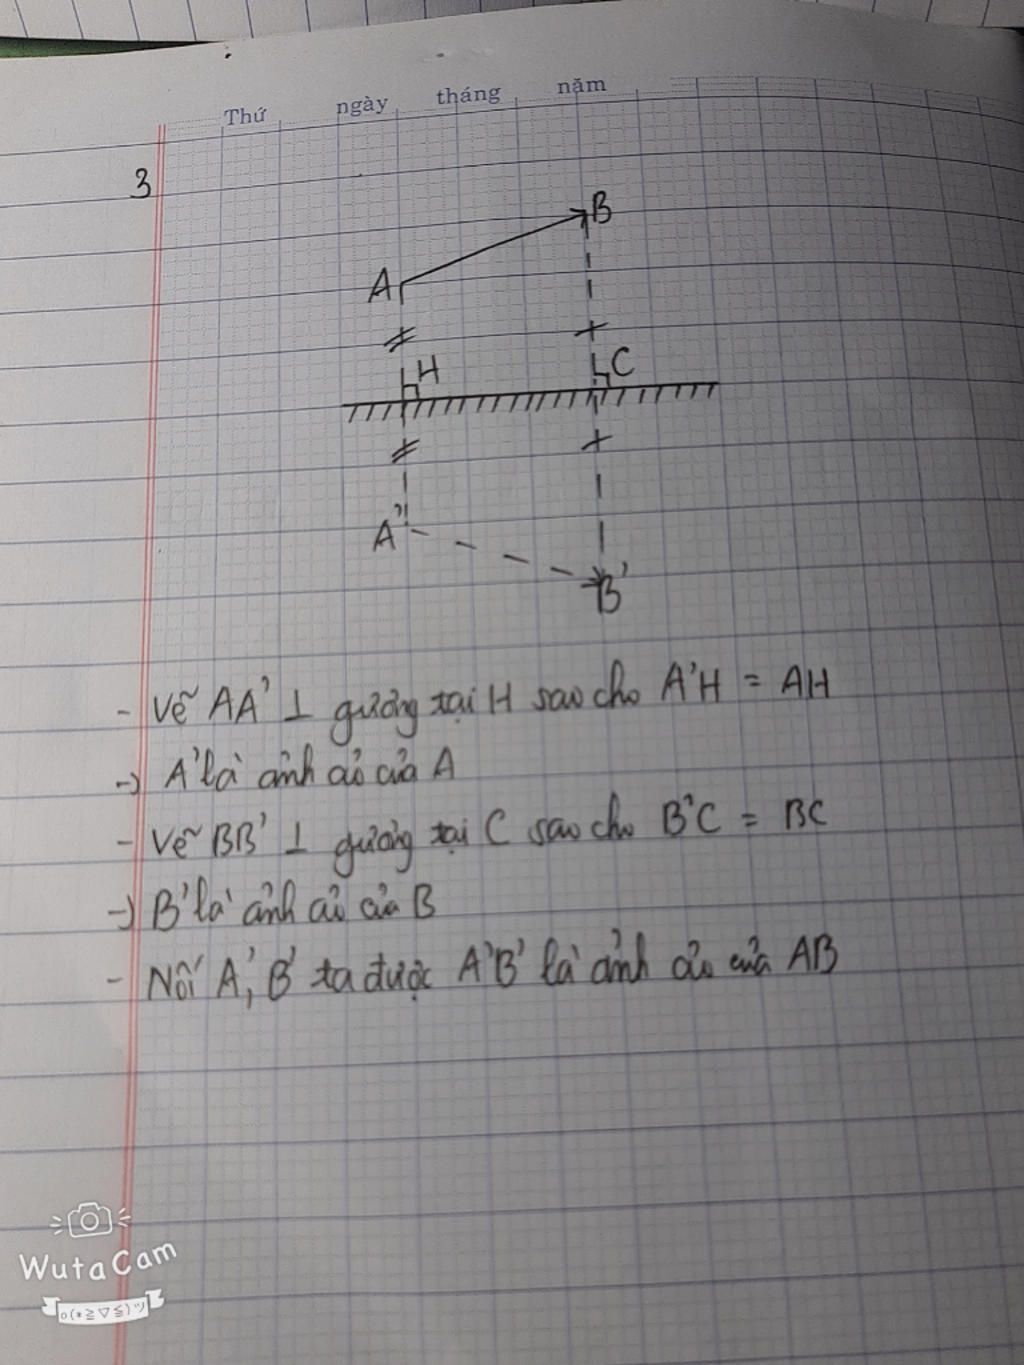 Thứ ngày tháng năm
3
B
A
H
C
A'
B'
- Vẽ AA' ⊥ gương tại H sao cho A'H = AH
-) A' là ảnh ảo của A
- Vẽ BB' ⊥ gương tại C sao cho B'C = BC
-) B' là ảnh ảo của B
- Nối A', B' ta được A'B' là ảnh ảo của AB
WutaCam
o(*≧▽≦)ツ